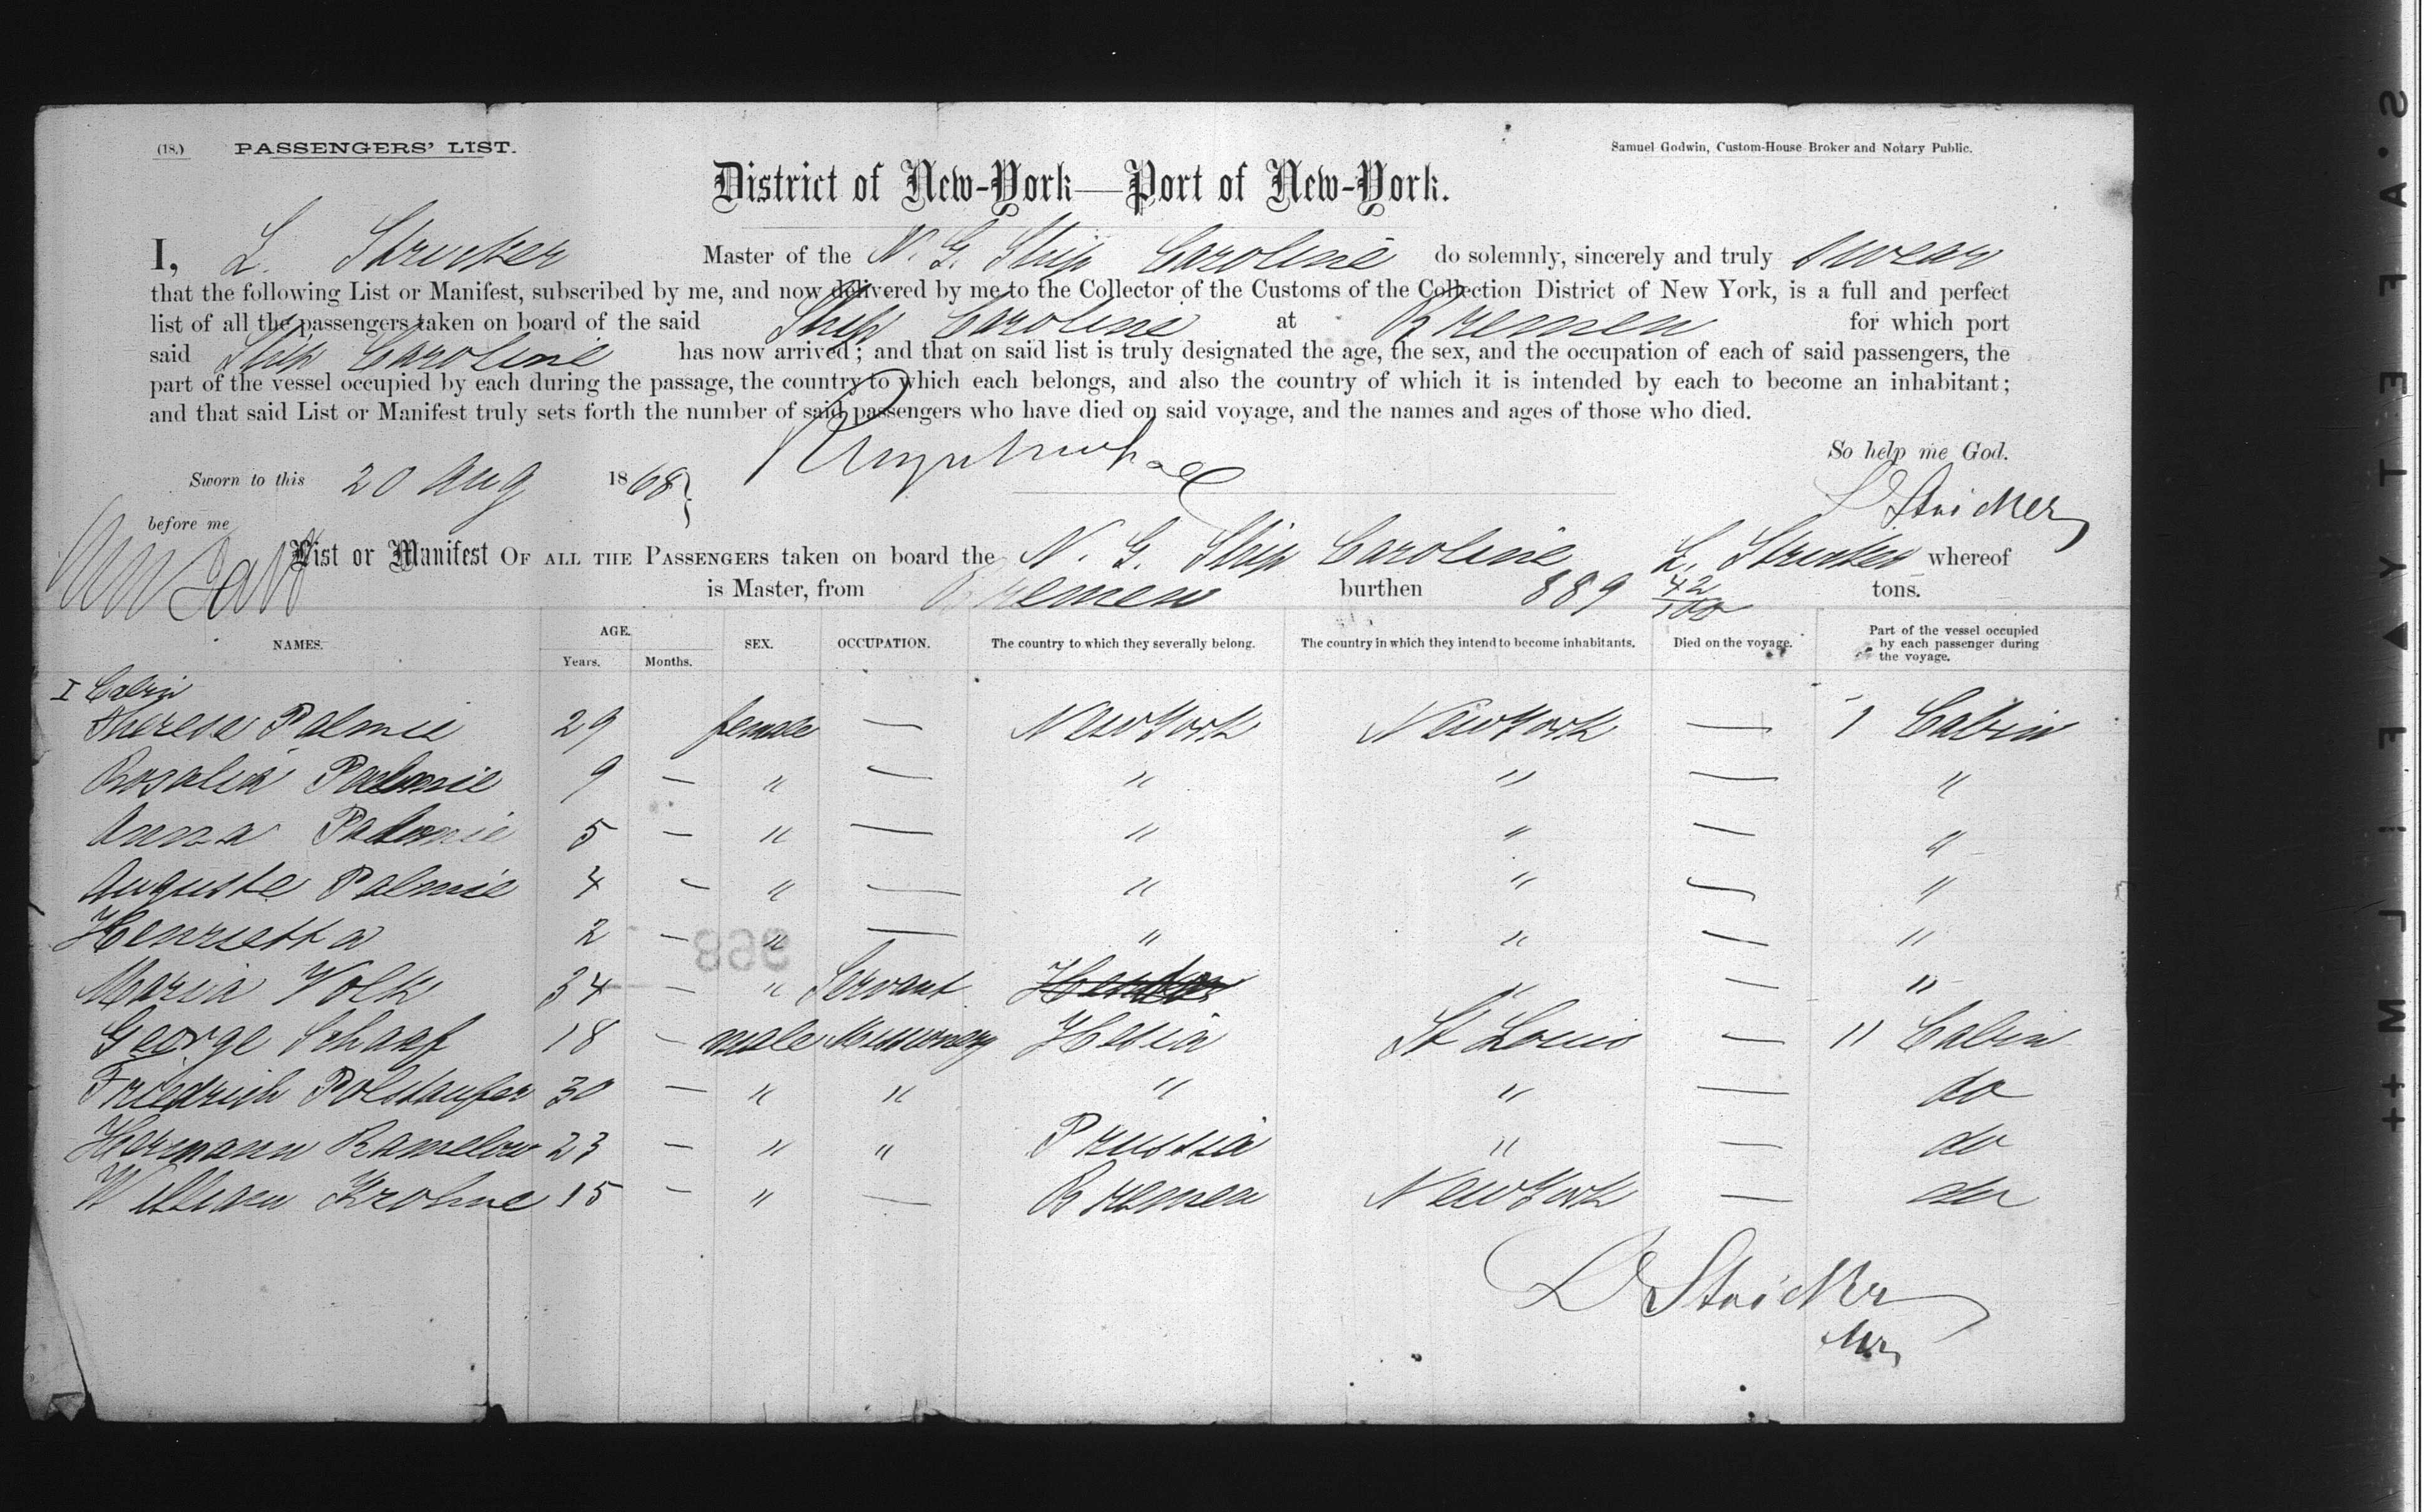 (18.) PASSENGERS' LIST. Samuel Godwin, Custom-House Broker and Notary Public.
District of New-York—Port of New-York.
I, L. Stricker Master of the N. G. Ship Caroline do solemnly, sincerely and truly swear
that the following List or Manifest, subscribed by me, and now delivered by me to the Collector of the Customs of the Collection District of New York, is a full and perfect
list of all the passengers taken on board of the said Ship Caroline at Bremen for which port
said Ship Caroline has now arrived; and that on said list is truly designated the age, the sex, and the occupation of each of said passengers, the
part of the vessel occupied by each during the passage, the country to which each belongs, and also the country of which it is intended by each to become an inhabitant;
and that said List or Manifest truly sets forth the number of said passengers who have died on said voyage, and the names and ages of those who died.
So help me God.
Sworn to this 20 Aug 1868 } L Stricker
before me
List or Manifest OF ALL THE PASSENGERS taken on board the N. G. Ship Caroline L. Stricker whereof
is Master, from Bremen burthen 889 42/100 tons.
NAMES. AGE. Years. Months. SEX. OCCUPATION. The country to which they severally belong. The country in which they intend to become inhabitants. Died on the voyage. Part of the vessel occupied by each passenger during the voyage.
I Cabin
Therese Palmie 29 female — New York New York — I Cabin
Rosalia Palmie 9 — " — " " — "
Anna Palmie 5 — " — " " — "
Auguste Palmie 4 — " — " " — "
Henrietta 2 — " — " " — "
Maria Volk 34 — " Servant " — "
George Schaaf 18 — male Missionary Hesia St Louis — II Cabin
Friedrich 30 — " " " " — do
Hermann Ramelow 23 — " " Prussia " — do
William Krohne 15 — " — Bremen New York — do
L Stricker
868
S.'AFETY ▲ FILM ++